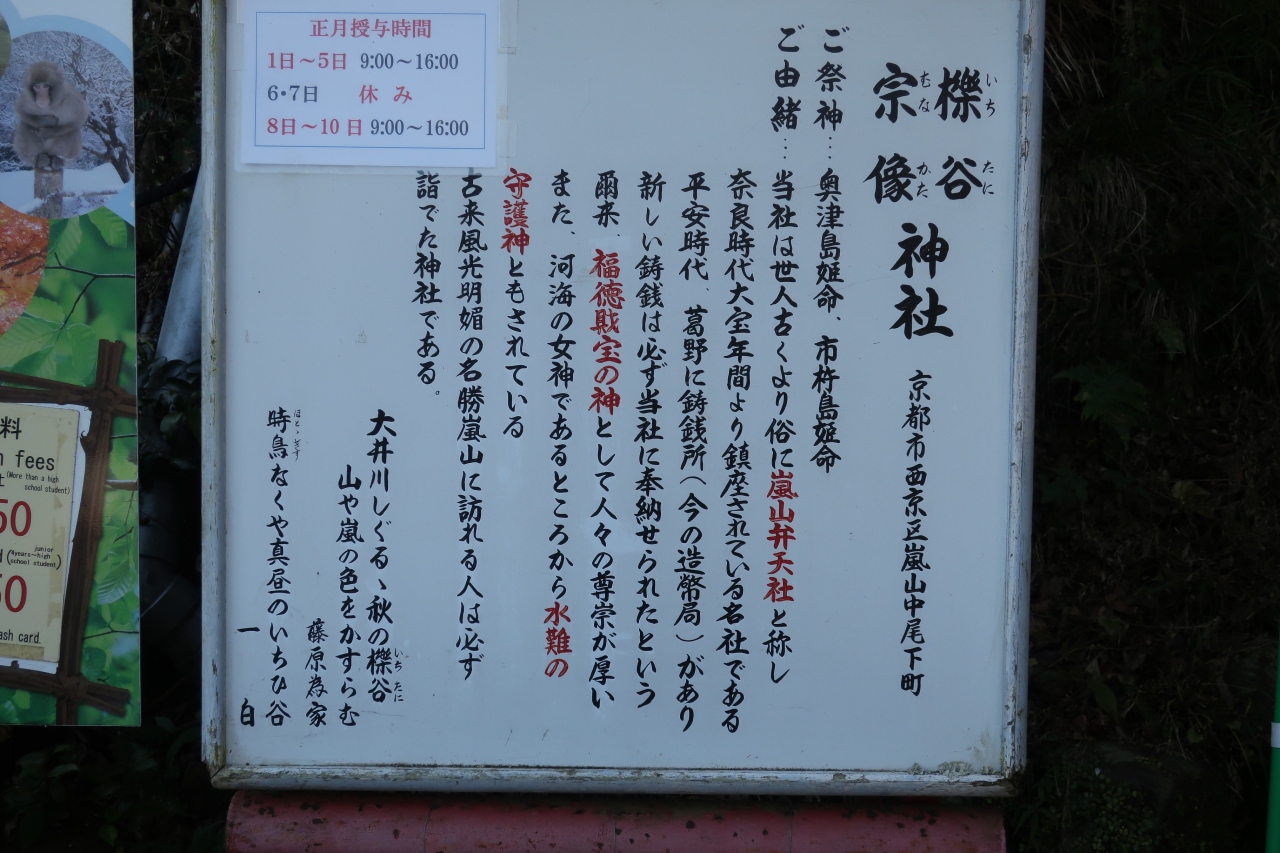 櫟谷
いちたに
宗像
むなかた
神社
京都市西京区嵐山中尾下町
ご祭神…奥津島姫命、市杵島姫命
ご由緒…当社は世人古くより俗に嵐山弁天社と称し
奈良時代大宝年間より鎮座されている名社である
平安時代、葛野に鋳銭所(今の造幣局)があり
新しい鋳銭は必ず当社に奉納せられたという
爾来、福徳財宝の神として人々の尊崇が厚い
また、河海の女神であるところから水難の
守護神ともされている
古来風光明媚の名勝嵐山に訪れる人は必ず
詣でた神社である。
大井川しぐるゝ秋の櫟谷
いちたに
山や嵐の色をかすらむ
藤原為家
時鳥なくや真昼のいちひ谷
ほとゝぎす
一白
正月授与時間
1日～5日 9:00～16:00
6・7日 休み
8日～10日 9:00～16:00
料
fees
(More than a high
school student)
50
junior
(4years~high
school student)
50
ash card.